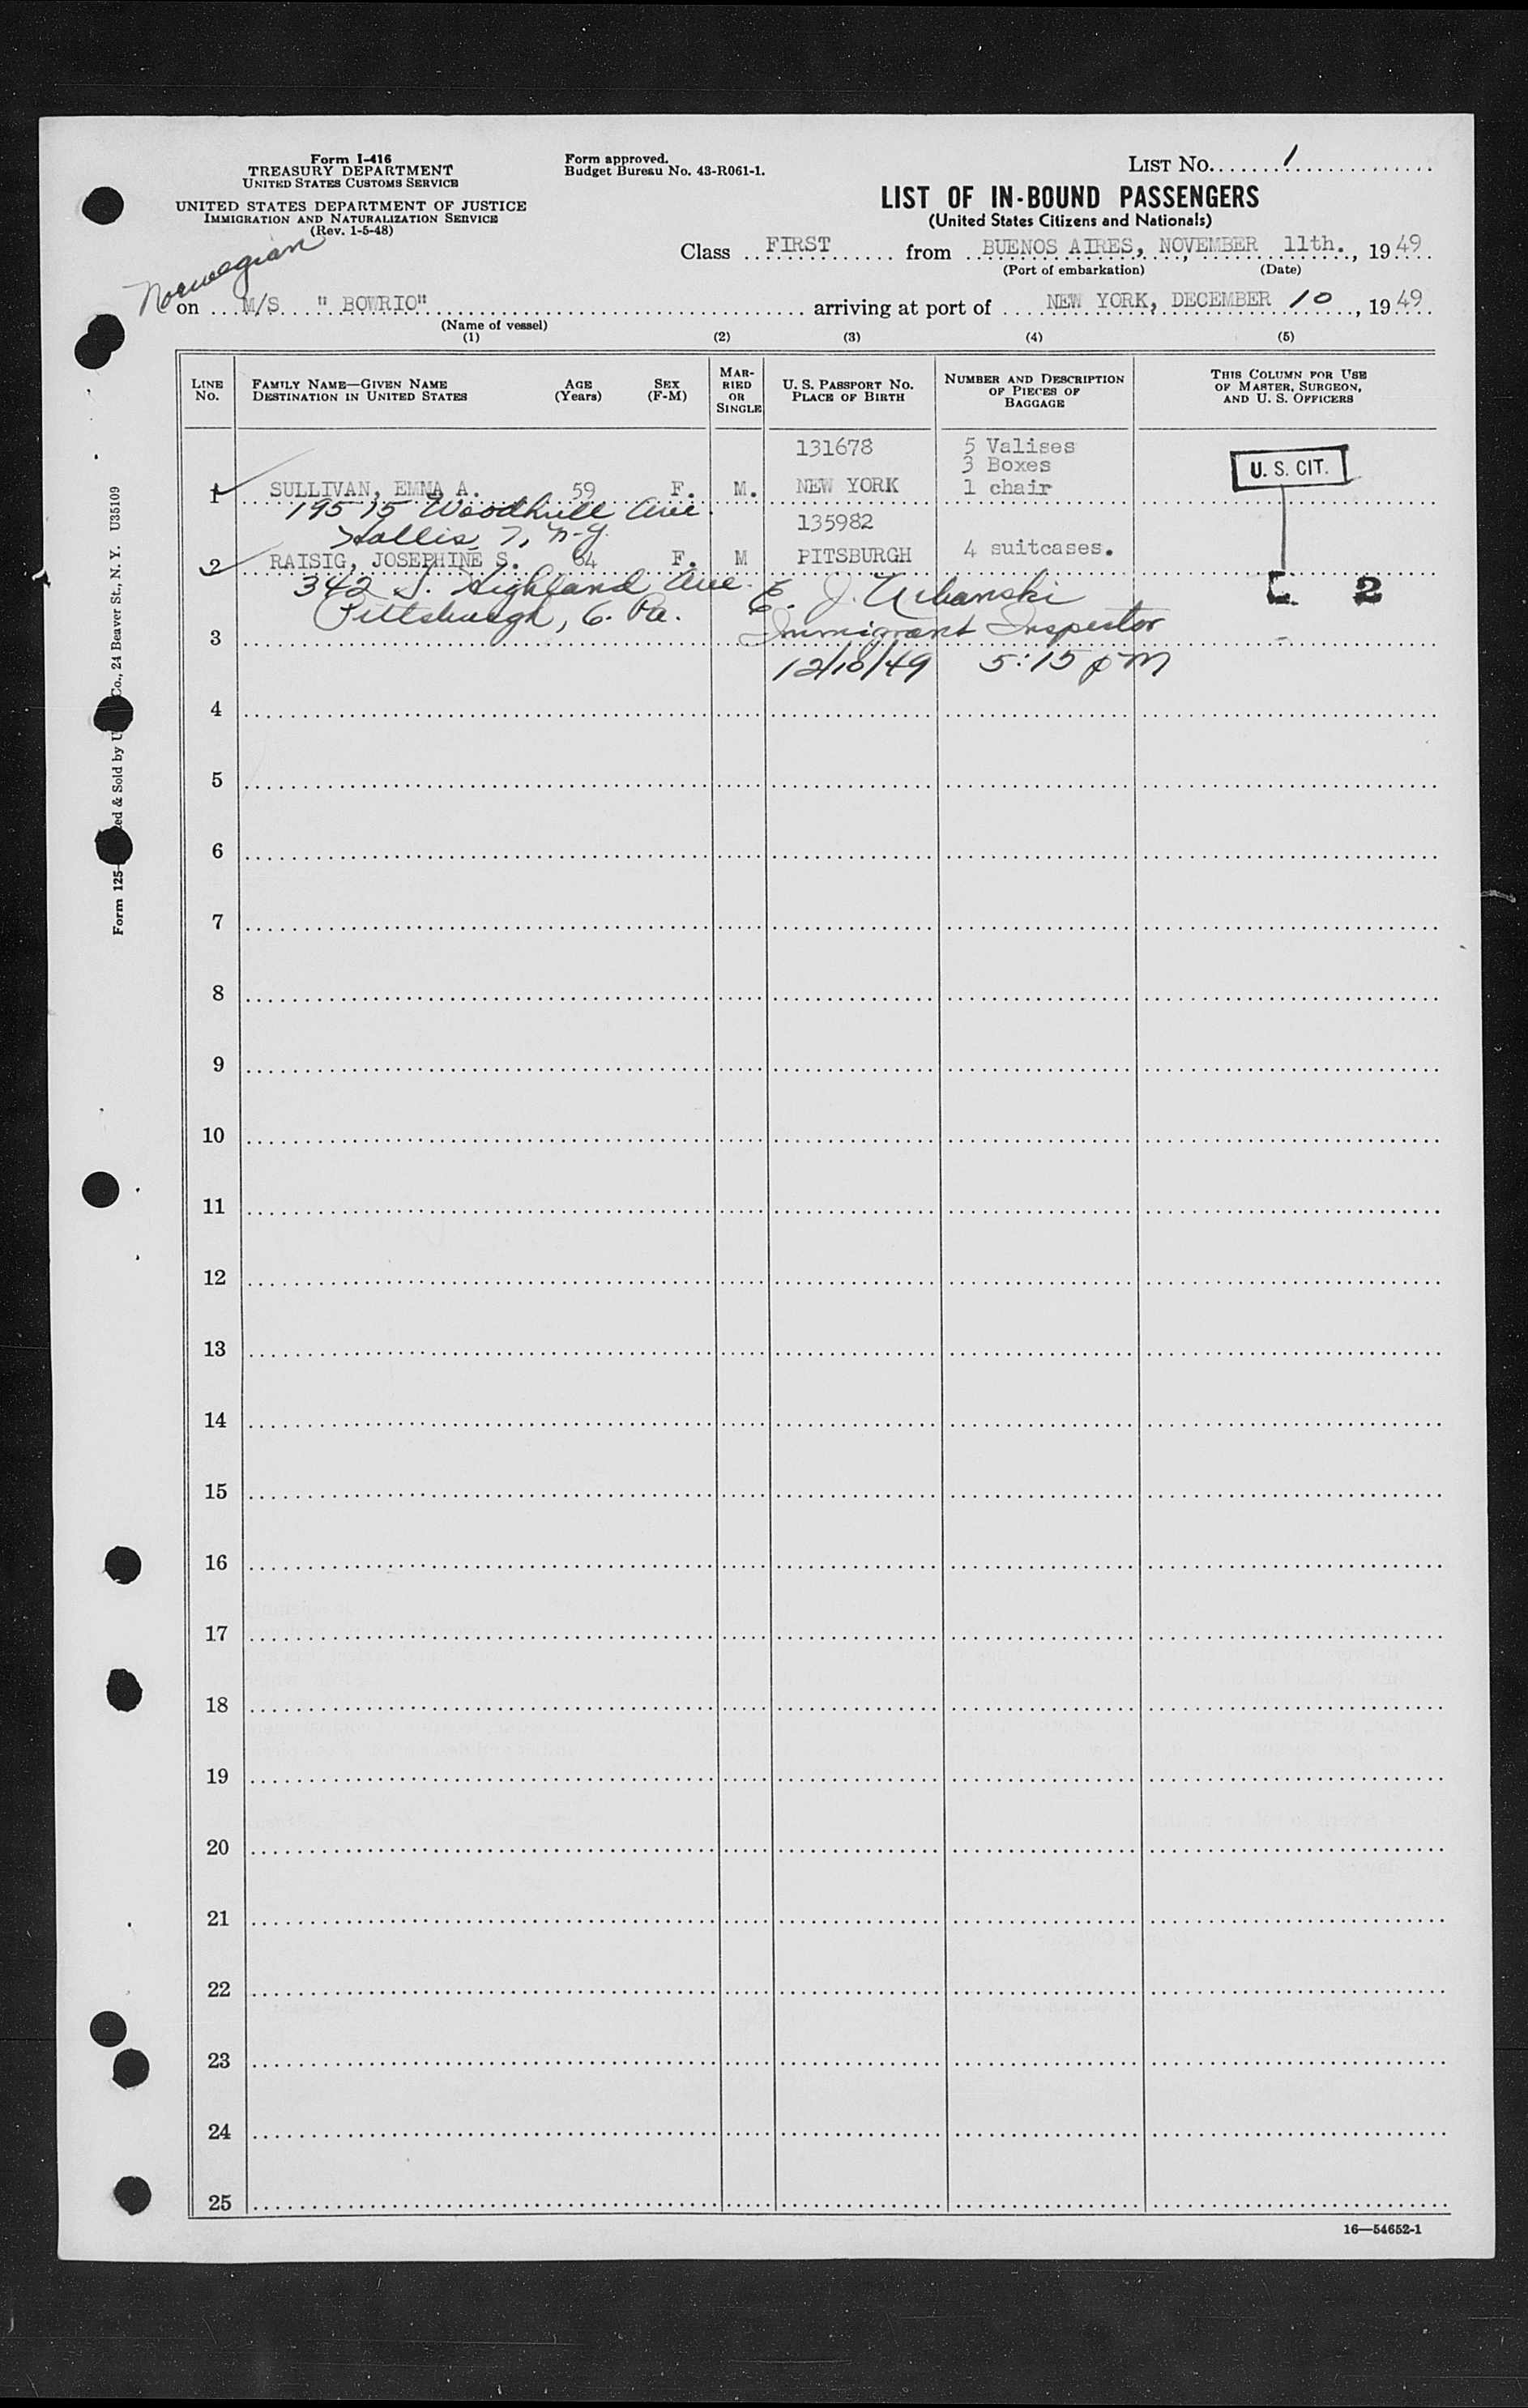 Form I-416
TREASURY DEPARTMENT
UNITED STATES CUSTOMS SERVICE
UNITED STATES DEPARTMENT OF JUSTICE
IMMIGRATION AND NATURALIZATION SERVICE
(Rev. 1-5-48)
Form approved.
Budget Bureau No. 43-R061-1.
LIST No. 1
LIST OF IN-BOUND PASSENGERS
(United States Citizens and Nationals)
Class FIRST from BUENOS AIRES, NOVEMBER 11th., 1949
(Port of embarkation) (Date)
Norwegian
on M/S "BOWRIO" arriving at port of NEW YORK, DECEMBER 10, 1949
(Name of vessel)
(1) (2) (3) (4) (5)
LINE No. FAMILY NAME—GIVEN NAME DESTINATION IN UNITED STATES AGE (Years) SEX (F-M) MARRIED OR SINGLE U. S. PASSPORT No. PLACE OF BIRTH NUMBER AND DESCRIPTION OF PIECES OF BAGGAGE THIS COLUMN FOR USE OF MASTER, SURGEON, AND U. S. OFFICERS
131678 5 Valises
3 Boxes
1 SULLIVAN, EMMA A. 59 F. M. NEW YORK 1 chair U. S. CIT.
195 15 Woodhull Ave.
Hollis, 7, N-Y. 135982
2 RAISIG, JOSEPHINE S. 64 F. M PITSBURGH 4 suitcases.
342 S. Highland Ave. E. J. Urbanski 2
Pittsburgh, 6. Pa. Immigrant Inspector
3
12/10/49 5:15 pM
4
5
6
7
8
9
10
11
12
13
14
15
16
17
18
19
20
21
22
23
24
25
16—54652-1
Form 125- ed & Sold by U Co., 24 Beaver St., N. Y. U35109